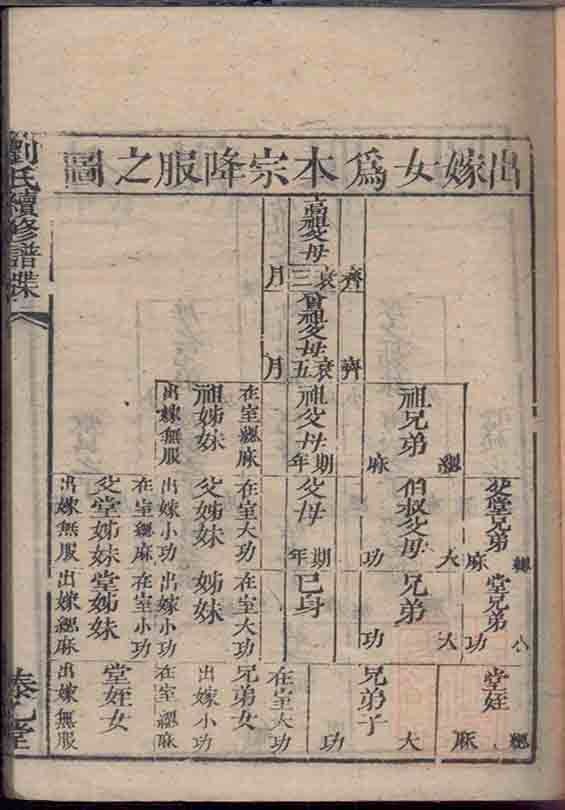 出嫁女爲本宗降服之圖
高祖父母
齊衰三月
曾祖父母
齊衰五月
祖兄弟
緦麻
祖父母
期年
在室緦麻
祖姊妹
出嫁無服
父堂兄弟
緦麻
伯叔父母
大功
父母
期年
在室大功
父姊妹
出嫁小功
在室緦麻
父堂姊妹
出嫁無服
堂兄弟
小功
兄弟
大功
己身
在室大功
姊妹
出嫁小功
在室小功
堂姊妹
出嫁緦麻
堂姪
緦麻
兄弟子
大功
在室大功
兄弟女
出嫁小功
在室緦麻
堂姪女
出嫁無服
劉氏續修譜牒
堂